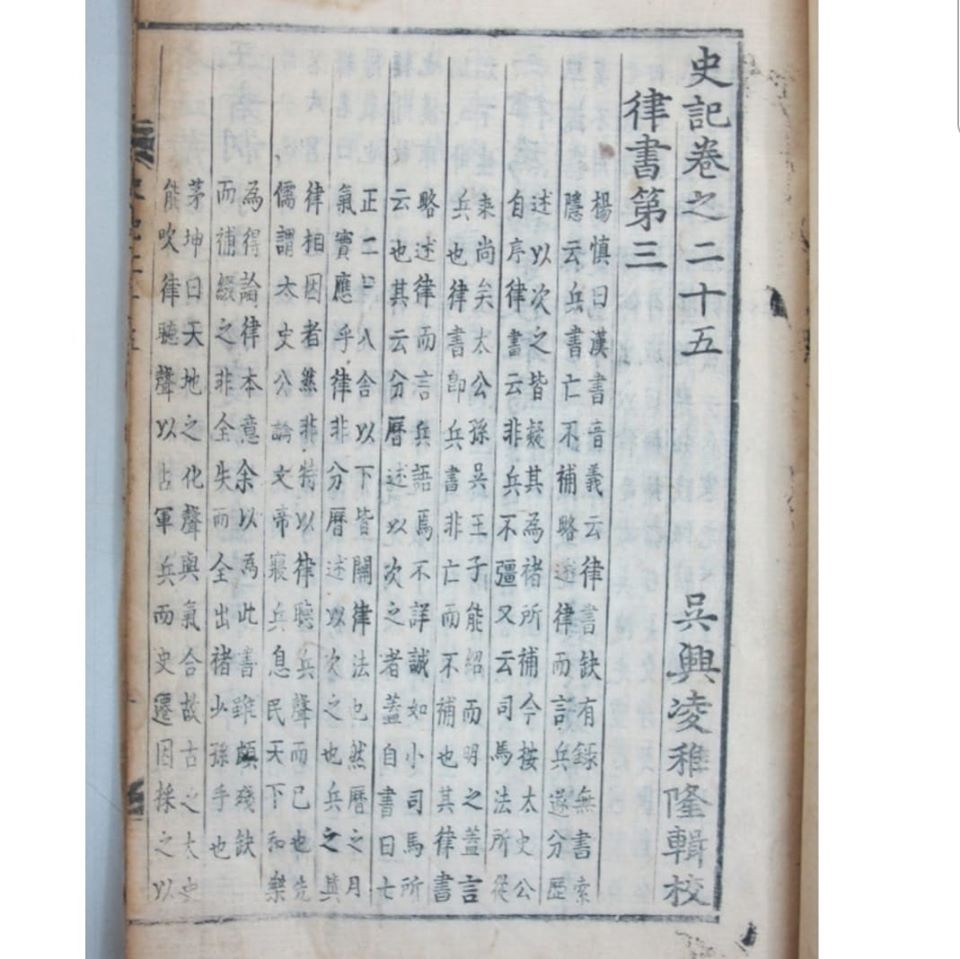 史記卷之二十五 吳興凌稚隆輯校
律書第三
楊慎曰漢書音義云律書缺有錄無書索
隱云兵書亡不補略述律而言兵遂分歷
述以次之皆疑其為褚所補今按太史公
自序律書云非兵不彊又云司馬法所從
來尚矣太公孫吳王子能紹而明之蓋言
兵也律書即兵書非亡而不補也其律書
略述律而言兵語焉不詳誠如小司馬所
云也其云分曆述以次之者蓋自書曰七
正二十八舍以下皆關律法也然曆之月
氣實應乎律非分曆述以次之也兵之其
律相因者然非特以律聽兵聲而已也先
儒謂太史公論文帝寢兵息民天下和樂
為得論律本意余以為此書雖頗殘缺
而補綴之非全失而全出褚少孫手也
茅坤曰天地之化聲與氣合故古之太史
能吹律聽聲以占軍兵而史遷因採之以